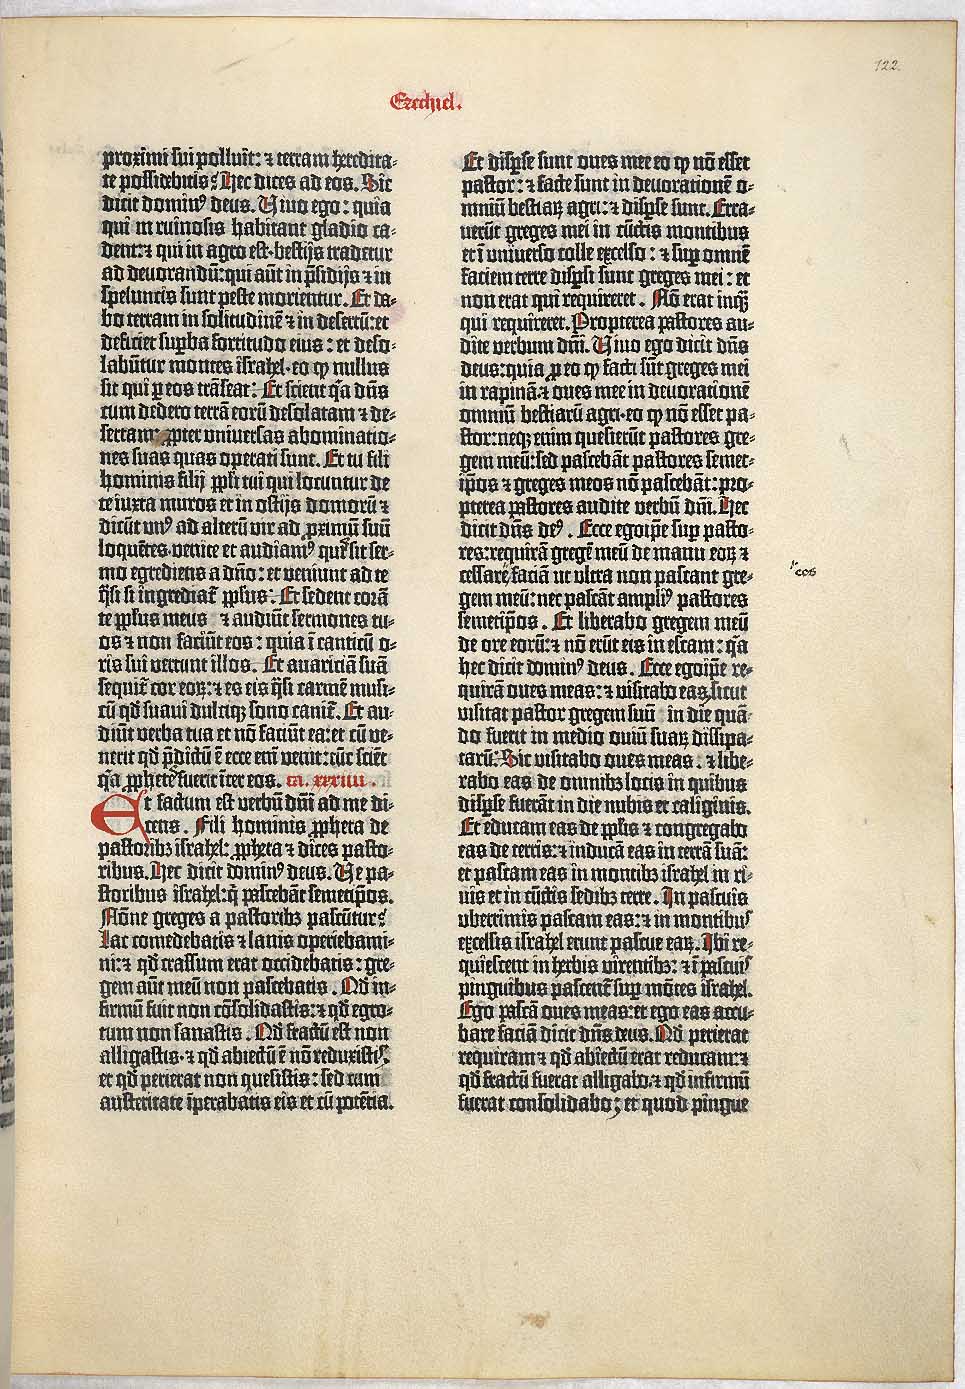 122.
Ezechiel.
proximi sui polluit: ⁊ terram heredita-
te possidebitis? Hec dices ad eos. Sic
dicit dominꝰ deus. Uiuo ego: quia
qui in ruinosis habitant gladio ca-
dent: ⁊ qui in agro est·bestijs tradetur
ad deuorandū: qui aūt in p̄sidijs ⁊ in
speluncis sunt peste morientur. Et da-
bo terram in solitudinē ⁊ in desertū: et
deficiet suꝑba fortitudo eius: et deso-
labūtur montes israhel·eo ꝙ nullus
sit qui ꝑ eos trāseat: Et scient q̄a dn̄s
cum dedero terrā eorū desolatam ⁊ de-
sertam ꝓpter vniuersas abominatio-
nes suas quas operati sunt. Et tu fili
hominis filij ppl̄i tui qui locuntur de
te iuxta muros et in ostijs domorū ⁊
dicūt vnꝰ ad alterū vir ad ꝓximū suū
loquētes·venite et audiamꝰ quis sit ser-
mo egrediens a dn̄o: et veniunt ad te
q̄si si ingrediat̄ ppl̄us. Et sedent corā
te ppl̄us meus ⁊ audiūt sermones tu-
os ⁊ non faciūt eos: quia ī canticū o-
ris sui vertunt illos. Et auariciā suā
sequit̄ cor eoꝝ: ⁊ es eis q̄si carmē musi-
cū qd̄ suaui dulciqꝫ sono canit̄. Et au-
diūt verba tua et nō faciūt ea: et cū ve-
nerit qd̄ p̄dictū ē ecce em̄ venit: tūc sciēt
q̄a ꝓphetes fuerit īter eos. ca. xxxiiii.
Et factum est verbū dn̄i ad me di-
cens. Fili hominis ꝓpheta de
pastoribꝫ israhel: ꝓpheta ⁊ dices pasto-
ribus. Hec dicit dominꝰ deus. Ue pa-
storibus israhel: q̄ pascebāt semetip̄os.
Nōne greges a pastoribꝫ pascūtur?
Lac comedebatis ⁊ lanis operiebami-
ni: ⁊ qd̄ crassum erat occidebatis: gre-
gem aūt meū non pascebatis. Qd̄ in-
firmū fuit non cōsolidastis: ⁊ qd̄ egro-
tum non sanastis. Qd̄ fractū est non
alligastis·⁊ qd̄ abiectū ē nō reduxistis.
et qd̄ perierat non quesistis: sed cum
austeritate īperabatis eis et cū potētia.
Et disꝑse sunt oues mee eo ꝙ nō esset
pastor: ⁊ facte sunt in deuorationē o-
mniū bestiaꝝ agri: ⁊ disꝑse sunt. Erra-
uerūt greges mei in cūctis montibus
et ī vniuerso colle excelso: ⁊ suꝑ omnē
faciem terre disꝑsi sunt greges mei: et
non erat qui requireret. Nō erat inqꝫ
qui requireret. Propterea pastores au-
dite verbum dn̄i. Uiuo ego dicit dn̄s
deus: quia pro eo ꝙ facti sūt greges mei
in rapinā·⁊ oues mee in deuorationē
omniū bestiarū agri·eo ꝙ nō esset pa-
stor: neqꝫ enim quesierūt pastores gre-
gem meū: sed pascebāt pastores semet-
ip̄os ⁊ greges meos nō pascebāt: pro-
pterea pastores audite verbū dn̄i. Hec
dicit dn̄s deꝰ. Ecce egoip̄e suꝑ pasto-
res: requirā gregē meū de manu eoꝝ ⁊
cessare faciā ut vltra non pascant gre-
eos
gem meū: nec pascāt ampliꝰ pastores
semetip̄os. Et liberabo gregem meū
de ore eorū: ⁊ nō erūt eis in escam: q̄a
hec dicit dominꝰ deus. Ecce egoip̄e re-
quirā oues meas: ⁊ visitabo eas sicut
visitat pastor gregem suū in die quā-
do fuerit in medio ouiū suaꝝ dissipa-
tarū: Sic visitabo oues meas: ⁊ libe-
rabo eas de omnibꝫ locis in quibus
disꝑse fuerāt in die nubis et caliginis.
Et educam eas de ppl̄is ⁊ congregabo
eas de terris: ⁊ inducā eas in terrā suā:
et pascam eas in montibꝫ israhel in ri-
uis et in cūctis sedibꝫ terre. In pascuis
vberrimis pascam eas: ⁊ in montibus
excelsis israhel erunt pascue eaꝝ. Ibi re-
quiescent in herbis virentibꝫ: ⁊ ī pascuis
pinguibus pascent̄ suꝑ mōtes israhel.
Ego pascā oues meas: et ego eas accu-
bare faciā dicit dn̄s deus. Qd̄ perierat
requiram ⁊ qd̄ abiectū erat reducam: ⁊
qd̄ fractū fuerat alligabo·⁊ qd̄ infirmū
fuerat consolidabo; et quod pingue